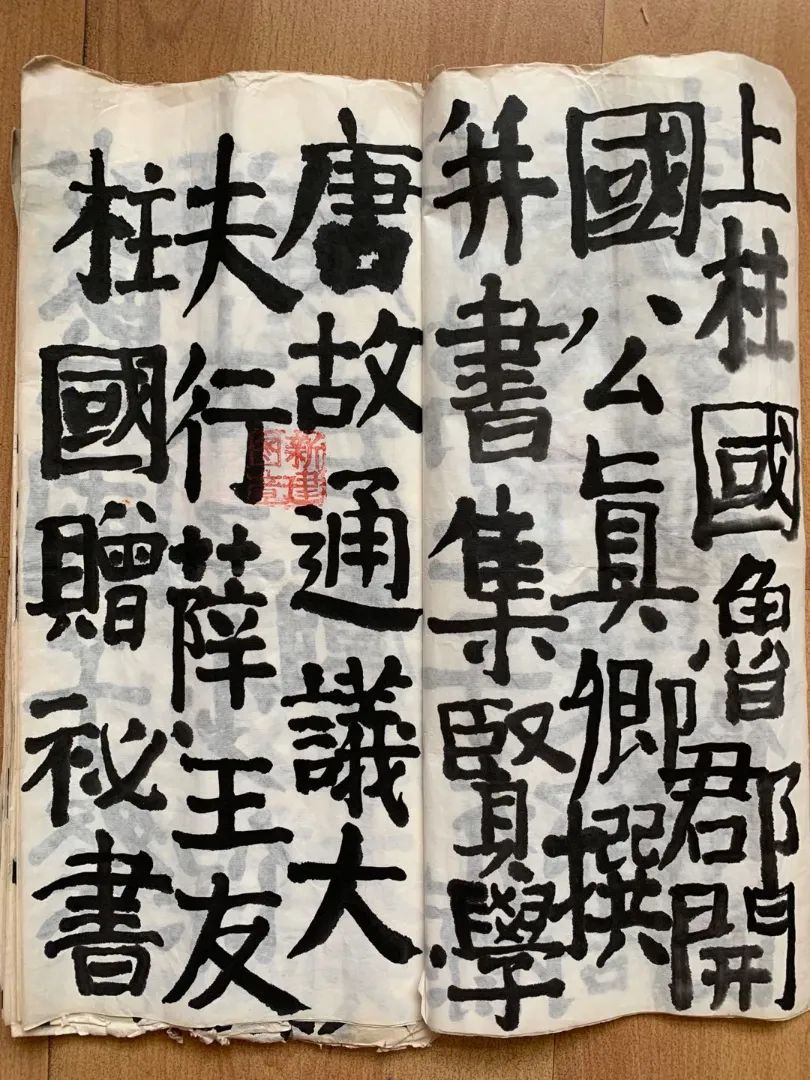 上柱國魯郡開
國公真卿撰
并書集賢學
唐故通議大
夫行薛王友
柱國贈祕書
新建